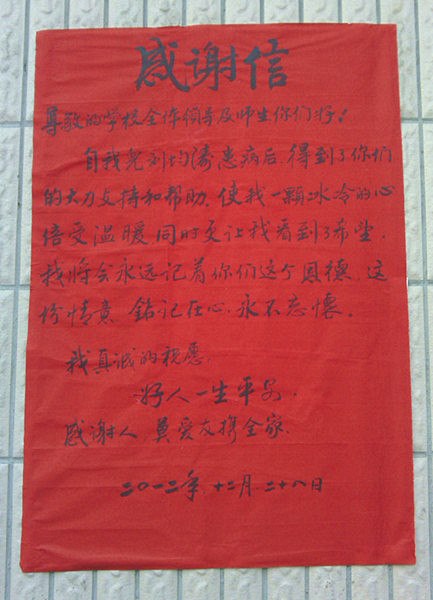 感谢信
尊敬的学校全体领导及师生你们好!
自我儿刘均涛患病后,得到了你们
的大力支持和帮助,使我一颗冰冷的心
倍受温暖,同时更让我看到了希望,
我将会永远记着你们这个恩德,这
份情意,铭记在心,永不忘怀。
我真诚的祝愿,
好人一生平安.
感谢人,莫爱友携全家.
二〇一二年,十二月,二十八日